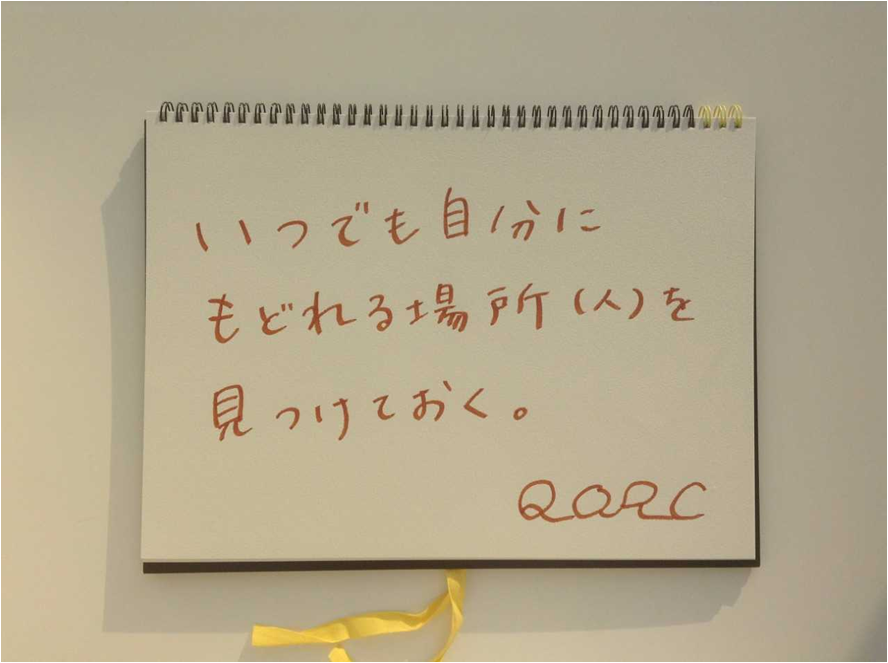 いつでも自分に
もどれる場所(人)を
見つけておく。